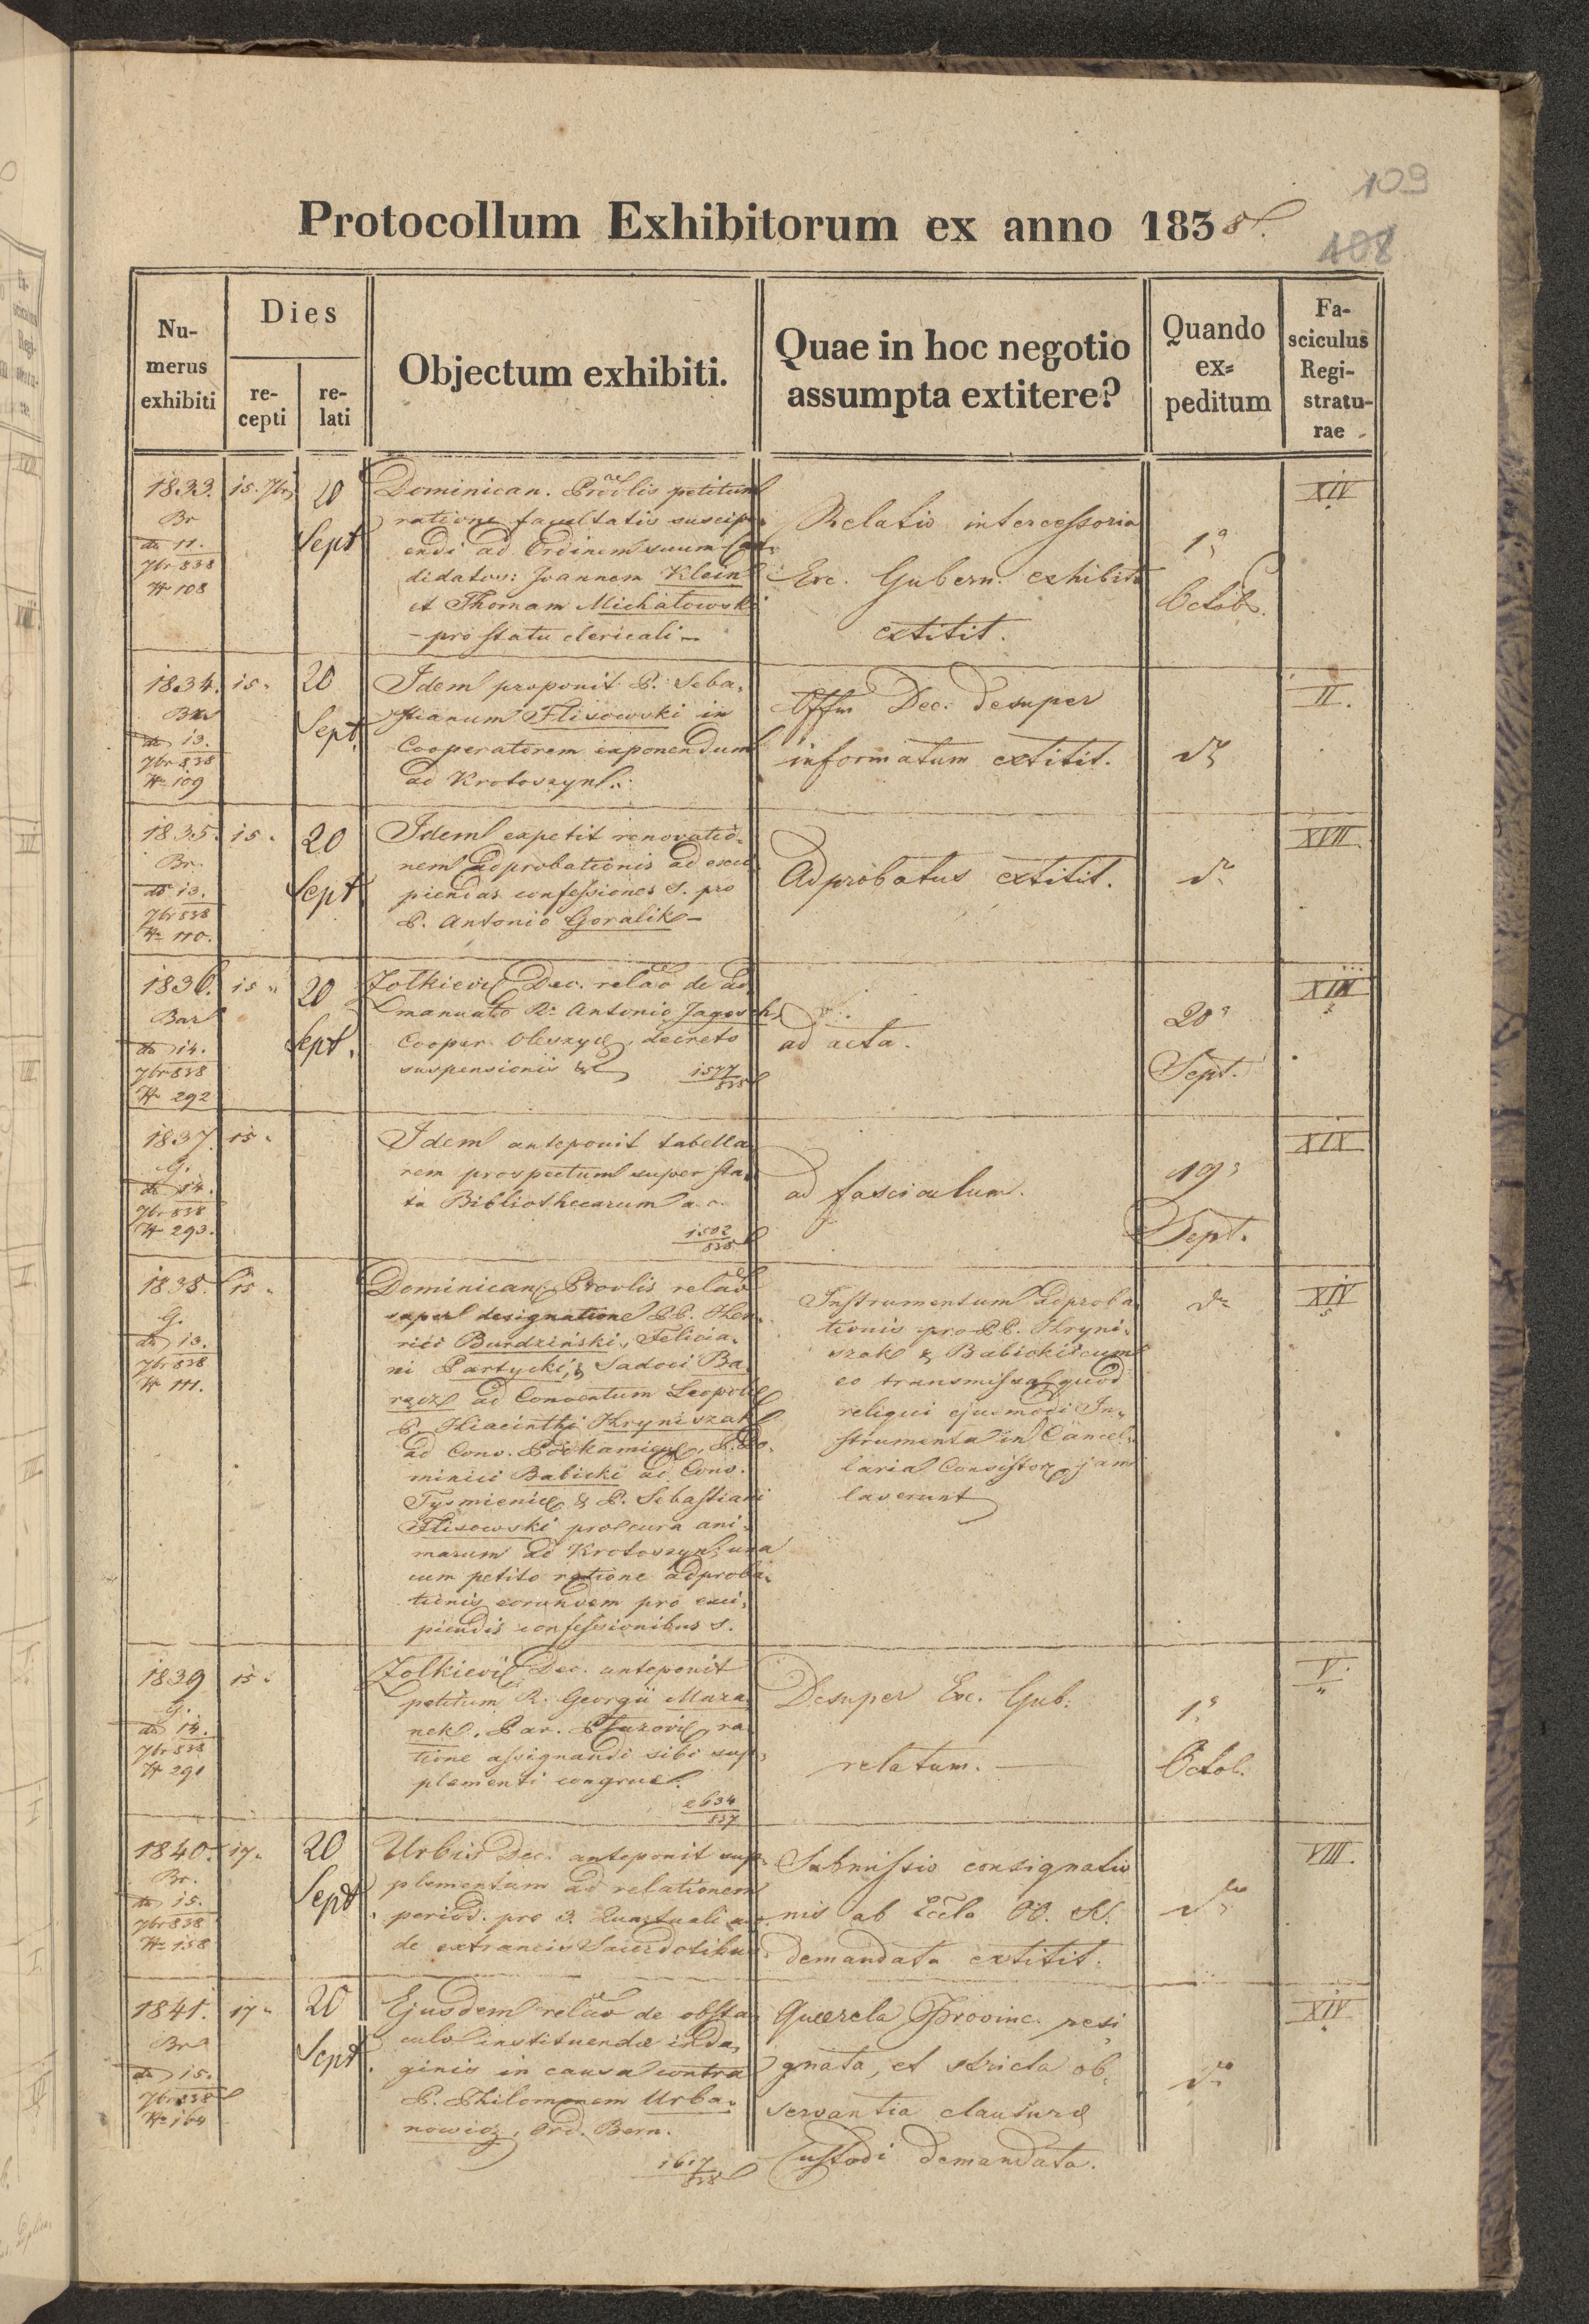 109
Protocollum Exhibitorum ex anno 1838.
108
Numerus exhibiti
Dies
recepti
relati
Objectum exhibiti.
Quae in hoc negotio assumpta extitere?
Quando ex=peditum
Fasciculus Registraturae
1833.
Br
dto 11.
7br 838
N 108
15. 7br
20
Sept
Dominican. Provlis petitum
ratione facultatis suscipi-
endi ad Ordinem suum Can-
didatos: Joannem Klein
et Thomam Michałowski
- pro statu clericali -
Relatio intercessoria
Exc. Gubern. exhibita
extitit.
1a
Octob.
XIV
1834.
dto 13.
7br 838
N 109
15.
20
Sept.
Idem proponit P. Seba-
stianum Flisowski in
Cooperatorem exponendum
ad Krotoszyn.
Offm Dec. desuper
informatum extitit.
do
II.
1835.
Br.
dto 13.
7br 838
N 110.
15.
20
Sept
Idem expetit renovatio-
nem adprobationis ad exci-
piendas confessiones s. pro
P. Antonio Goralik -
Adprobatus extitit.
do
XVII
1836.
Bar
dto 14.
7br 838
N 292
15.
20
Sept.
Zolkievi Dec. relao de ad
manuato R. Antonio Jagosch,
Cooper. Oleszyc, decreto
suspensionis
1577
838
ad acta.
20a
Sept.
XIII
1837.
G.
dto 14.
7br 838
N 293.
15.
Idem anteponit tabella-
rem prospectum super sta-
tu Bibliothecarum a. c.
1502
838
ad fasciculum.
19a
Sept.
XIX
1838.
G.
dto 13.
7br 838
N 111.
15.
Dominican. Provlis relao
super designatione PP. Hen-
rici Burdziński, Felicia-
ni Partycki, & Sadoci Ba-
rącz ad Conventum Leopol.
P. Hiacinthi Hryniszak
ad Conv. Podkamien, P. Do-
minici Babicki ad Conv.
Tysmienic & P. Sebastiani
Flisowski pro cura ani-
marum ad Krotoszyn; una
cum petito ratione adproba-
tionis eorundem pro exci-
piendis confessionibus s.
Instrumentum Adproba-
tionis pro PP. Hryni-
szak & Babicki cum
eo transmissa, quod
reliqui ejusmodi In-
strumenta in Cancel-
laria Consistor. jam
do
XIV
1839
G.
dto 14.
7br 838
N 291
15.
Zolkievi Dec. anteponit
petitum R. Georgii Maza-
nek, Par. ra-
tione assignandi sibi sup-
plementi congruae.
2634
837
Desuper Exc. Gub.
relatum. -
1a
Octob.
V.
1840.
Br.
dto 15.
7br 838
N 158
17.
20
Sept
Urbis Dec. anteponit sup-
plementum ad relationem
period. pro 3. Quartuali
de extraneis Sacerdotibus
Submissio consignatio
nis ab Eccla
demandata extitit.
do
VIII.
1841.
Br
dto 15.
7br 838
N 164
17.
20
Sept.
Ejusdem relao de obsta-
culo instituendae inda-
ginis in causa contra
P. Philomonem Urba-
nowicz, Ord. Bern.
1617
838
Querela Provinc. resi
gnata, et stricta ob-
servantia clausurae
Custodi demandata.
do
XIV